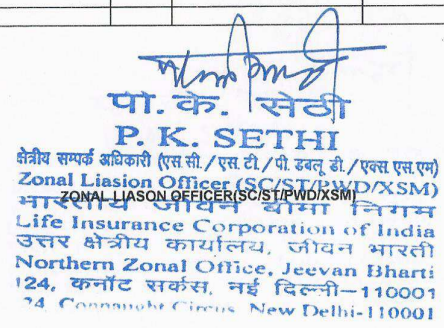 पी. के. सेठी
P. K. SETHI
क्षेत्रीय सम्पर्क अधिकारी (एस सी./एस.टी./पी. डबलू डी./एक्स एस.एम)
Zonal Liasion Officer (SC/ST/PWD/XSM)
ZONAL LIASON OFFICER(SC/ST/PWD/XSM)
भारतीय जीवन बीमा निगम
Life Insurance Corporation of India
उत्तर क्षेत्रीय कार्यालय, जीवन भारती
Northern Zonal Office, Jeevan Bharti
124, कनॉट सर्कस, नई दिल्ली-110001
24 Connaught Circus New Delhi-110001